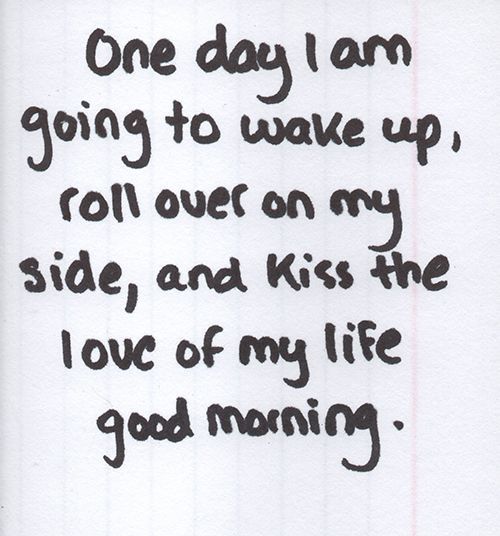 One day I am
going to wake up,
roll over on my
side, and kiss the
love of my life
good morning.